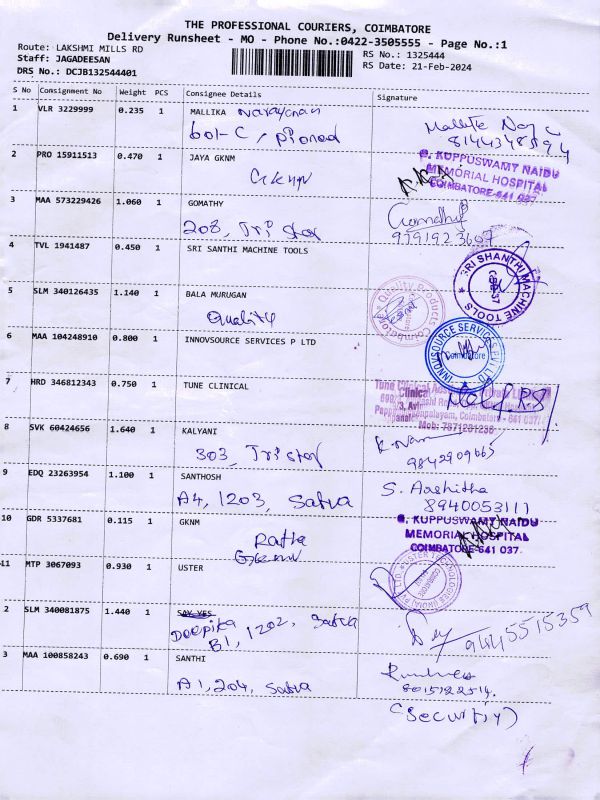 THE PROFESSIONAL COURIERS, COIMBATORE
Delivery Runsheet - MO - Phone No.:0422-3505555 - Page No.:1
Route: LAKSHMI MILLS RD
Staff: JAGADEESAN
DRS No.: DCJB132544401
RS No.: 1325444
RS Date: 21-Feb-2024
S No Consignment No Weight PCS Consignee Details Signature
1 VLR 3229999 0.235 1 MALLIKA Narayanan
601-C,
Mallika
2 PRO 15911513 0.470 1 JAYA GKNM
GKNM
G. KUPPUSWAMY NAIDU
MEMORIAL HOSPITAL
COIMBATORE-641 037
3 MAA 573229426 1.060 1 GOMATHY
203, Tristar
Gomathy
4 TVL 1941487 0.450 1 SRI SANTHI MACHINE TOOLS
SRI SHANTHI MACHINE TOOLS
5 SLM 340126435 1.140 1 BALA MURUGAN
Quality
Quality Products Coimbatore
6 MAA 104248910 0.800 1 INNOVSOURCE SERVICES P LTD
INNOVSOURCE SERVICES PVT LTD
Coimbatore
7 HRD 346812343 0.750 1 TUNE CLINICAL
Tune Clinical
Coimbatore - 641 037
Mob: 7871231236
8 SVK 60424656 1.640 1 KALYANI
303, Tristar
9842909663
9 EDQ 23263954 1.100 1 SANTHOSH
A4, 1203, Satva
S. Aashitha
8940053111
10 GDR 5337681 0.115 1 GKNM
Ratha
GKNM
G. KUPPUSWAMY NAIDU
MEMORIAL HOSPITAL
COIMBATORE-641 037
11 MTP 3067093 0.930 1 USTER
USTER TECHNOLOGIES (INDIA) P LTD
2 SLM 340081875 1.440 1 SAY YES
Deepika
B1, 1202, Satva
9445515359
3 MAA 100858243 0.690 1 SANTHI
A1, 204, Satva
8015122514.
(Security)